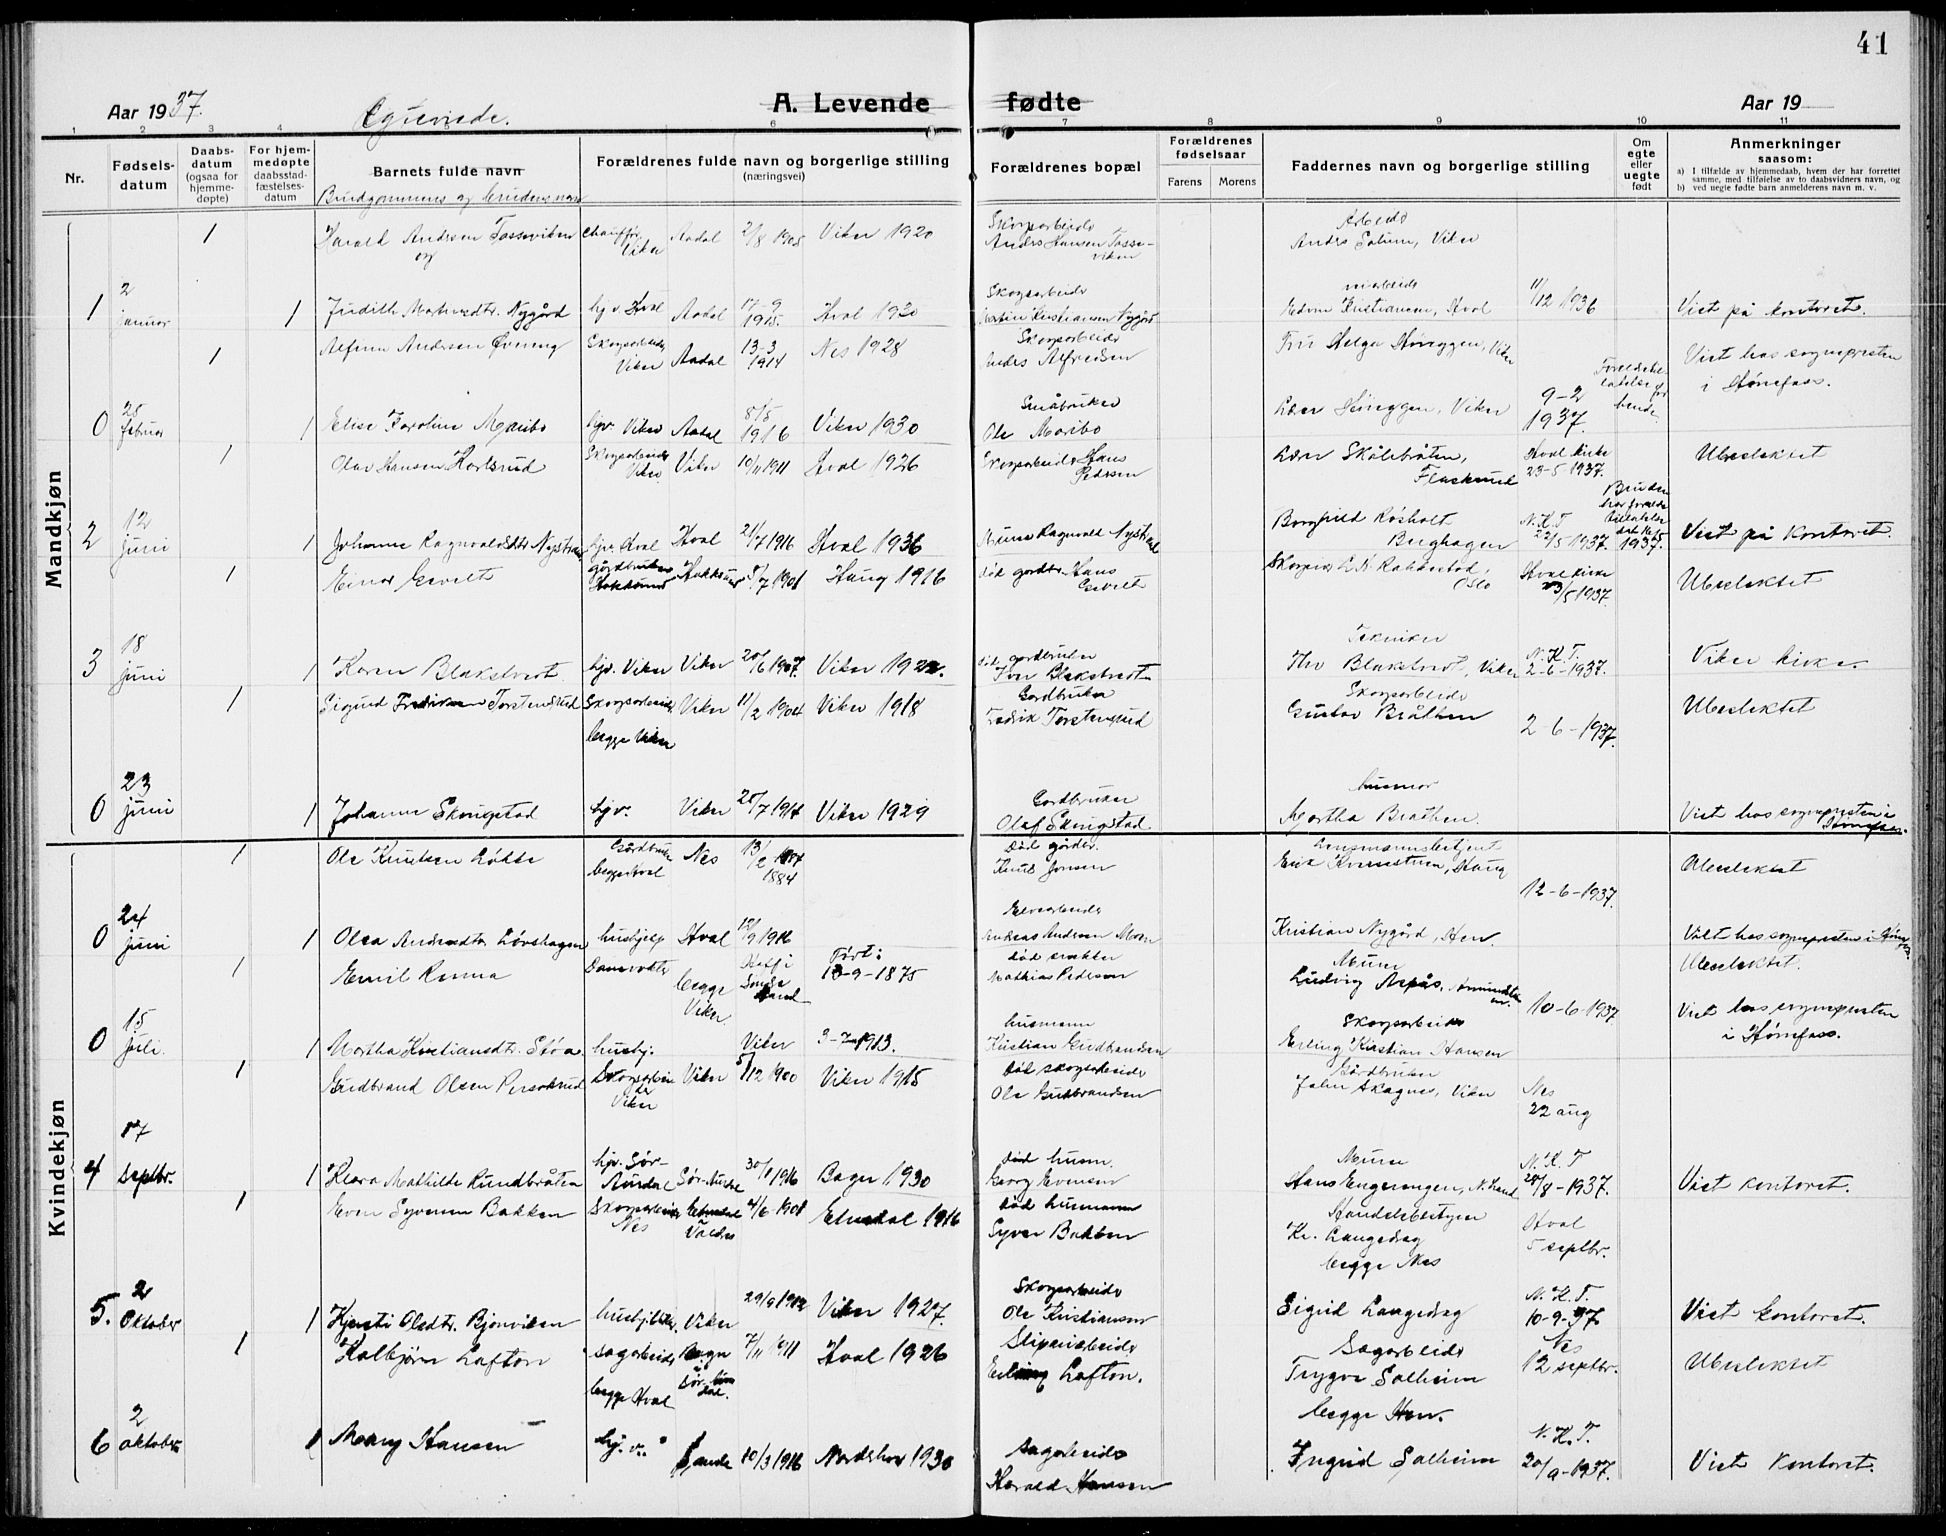 41
Aar 1937.
Egteviede.
A. Levende fødte
Aar 19
1 2 3 4 5 6 7 8 9 10 11
Nr.
Fødselsdatum
Daabsdatum (ogsaa for hjemmedøpte)
For hjemmedøpte daabsstadfæstelsesdatum
Barnets fulde navn
Brudgommens og brudens navn
Forældrenes fulde navn og borgerlige stilling
(næringsvei)
Forældrenes bopæl
Forældrenes fødselsaar
Farens Morens
Faddernes navn og borgerlige stilling
Om egte eller uegte født
Anmerkninger
saasom:
a) I tilfælde av hjemmedaab, hvem der har forrettet samme, med tilføielse av to daabsvidners navn, og
b) ved uegte fødte barn anmelderens navn m. v.
Mandkjøn
Kvindekjøn
1 Harald Andersen Tosseviken Chauffør Viker Aadal 2/8 1905 Viker 1920 Skogsarbeider Anders Hansen Tosseviken Arbeider Anders Solum, Viker
og
1 2 januar 1 Judith Martinsdtr. Nygård hj.v. Hval Aadal 17-9 1915. Hval 1920 Skogsarbeider Martin Kristiansen Nygård Edvin Kristiansen, Hval 11/12 1936 Viet på kontoret.
1 Alfinn Andersen Skogsarbeider Viker Aadal 13-3 1914 Nes 1928 Skogsarbeider Anders Alfredsen Fru Helga Høneggen, Viker Viet hos sognepresten i Hønefoss.
0 25 februar 1 Elise Karoline Maribo hjv. Viker Aadal 8/5 1916 Viker 1930 Småbruker Ole Maribo Lærer Høneggen, Viker 9-2 1937. for bende
1 Olav Hansen Karlsrud Skogsarbeider Viker Viker 10/11 1911 Hval 1926 Skogsarbeider Hans Pedersen Lærer Skålebråten, Flaskerud Hval kirke 23-5 1937. Ubeslektet
2 12 juni 1 Johanne Ragnvaldsdtr Nystrand hjv. Hval Hval 21/7 1916 Hval 1936 Ragnvald Nystrand Borghild Røsholt Berghagen N.K.T 22/5 1937. Bruden har 1937. Viet på kontoret.
1 Einar Gårdbruker Hokksund Hokksund 5/7 1901 Haug 1916 død gårdbr. Hans Rakkestad, Oslo Hval kirke 23/5 1937. Ubeslektet
3 18 juni 1 Karen Blakstvedt. hjv. Viker Viker 20/6 1907. Viker 1922. død gordbruker Iver Blakstvedt Tekniker Blakstvedt, Viker N.K.T. 2-6-1937. Viker kirke
1 Sigurd Fredriksen Torstensrud Skogsarbeider begge Viker Viker 11/2 1904 Viker 1918 Gordbruker Fredrik Torstensrud Skogsarbeider Gustav Bråthen 2-6-1937. Ubeslektet
0 23 juni 1 Johanne Skougstad hjv. Viker 20/7 1914 Viker 1929 Gordbruker Olaf Skougstad husmor Martha Bråthen. Viet hos sognepresten i Hønefoss.
1 Ole Knutsen Løkke Gårdbruker begge Hval Nes 13/2 1884 død gårdbr. Knut Jonsen Lensmannsbetjent Erik Haug 12-6-1937. Ubeslektet
0 24 juni 1 Olea Andreasdtr. Løvshagen hushjelp Hval 12/9 1916 Elvearbeider Andreas Andersen Moen Kristian Nygård, Hen. Viet hos sognepresten i Hønefoss
1 Emil Renna begge Viker Søndre Land Født: 13-9-1875 død Mathias Pedersen Murer Ludvig Aspås, 10-6-1937 Ubeslektet.
0 15 juli. 1 Martha Kristiansdtr. Støa. hushj. Viker 3-7-1913. husmann Kristian Gudbrandsen Skogsarbeider Erling Kristian Hansen Viet hos sognepresten i Hønefoss.
1 Gudbrand Olsen Skogsarbeider Viker Viker 5/12 1900 Viker 1915 død skogsarbeider Ole Gudbrandsen Gårdbruker John Skagnes, Viker Nes 22 aug
4 17 septbr. 1 Klara Mathilde Rundbråten hjv. Sør-Aurdal Sør-Aurdal 30/1 1916 Bagn 1930 død husm. Evensen Murer Hans Engerengen, N. Land N.K.T 28/8-1937. Viet kontoret.
1 Even Syversen Bakken Skogsarbeider Nes Etnedal Valdres 4/6-1901 Etnedal 1916 død husmann Syver Bakken Handelsbestyrer Kr. Langedrag begge Nes Hval 5 septbr.
5. 2 Oktober 1 Kjersti Olsdtr. Bjonviken hushj. Viker 29/9 1912 Viker 1927. Skogsarbeider Ole Kristiansen Sigrid Langedrag N.K.T. 10-9-37 Viet kontoret.
1 Kolbjørn Lafton sagarbeider begge Hval Bagn Sør-Aurdal. 7/11 1911 Hval 1926 Sliperiarbeider Erling Lafton. Sagarbeider Trygve Solheim begge Hen. Nes 12 septbr. Ubeslektet
6 2 oktober 1 Mary Hansen hj.v. Sande 10/3 1916 Nordsho 1930 sagarbeider Harald Hansen Ingrid Solheim N.K.T. 20/9-1937. Viet kontoret.